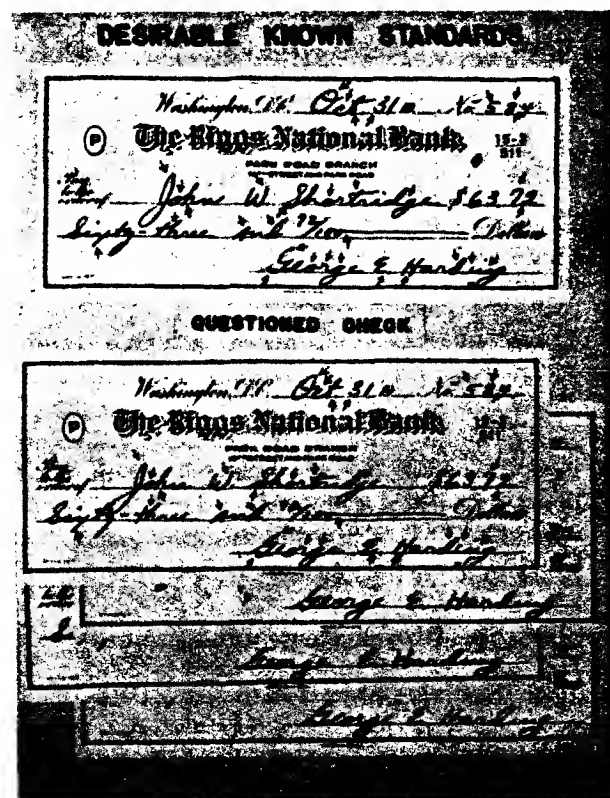 DESIRABLE KNOWN STANDARDS
Washington, D.C. Oct 31 19 No. 524
P The Riggs National Bank 15-3
511
PARK ROAD BRANCH
14TH STREET AND PARK ROAD
Pay to the order of John W. Shortridge $63.72
Sixty-three and 72/100 Dollars
George E Harding
QUESTIONED CHECK
Washington, D.C. Oct 31 19 No. 524
P The Riggs National Bank 15-3
511
PARK ROAD BRANCH
14TH STREET AND PARK ROAD
John W. Shortridge $63.72
Sixty-three and 72/100 Dollars
George E. Harding
George E. Harding
George E Harding
George E Harding